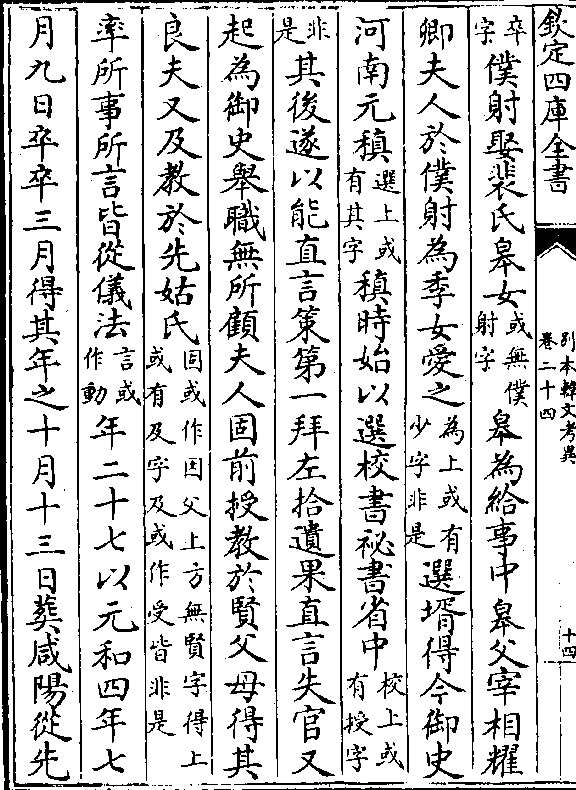 欽定四庫全書
別本韓文考異
卷二十四
十四
卒
字僕射娶裴氏臯女或無僕
射字臯為給事中臯父宰相耀
卿夫人於僕射為季女愛之為上或有
少字非是選壻得今御史
河南元稹選上或
有其字稹時始以選校書祕書省中校上或
有授字
非
是其後遂以能直言策第一拜左拾遺果直言失官又
起為御史舉職無所顧夫人固前授教於賢父母得其
良夫又及教於先姑氏固或作因父上方無賢字得上
或有及字及或作受皆非是
率所事所言皆從儀法言或
作動年二十七以元和四年七
月九日卒卒三月得其年之十月十三日葬咸陽從先